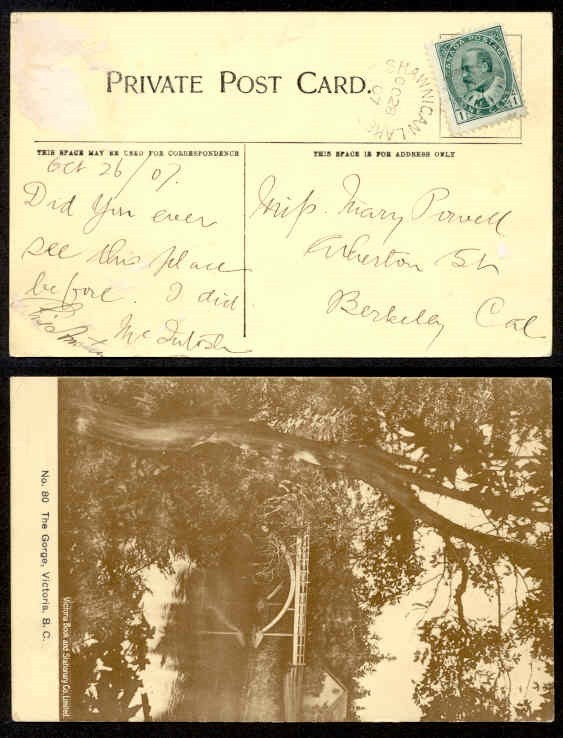 PRIVATE POST CARD.
SHAWNIGAN LAKE
OC 28
07
CANADA POSTAGE
1 ONE CENT 1
THIS SPACE MAY BE USED FOR CORRESPONDENCE
THIS SPACE IS FOR ADDRESS ONLY
Oct 26/07.
Did you ever
see this place
before. I did
McIntosh
Miss. Mary Powell
Atherton St
Berkeley Cal
No. 80 The Gorge, Victoria, B. C.
Victoria Book and Stationary Co. Limited.